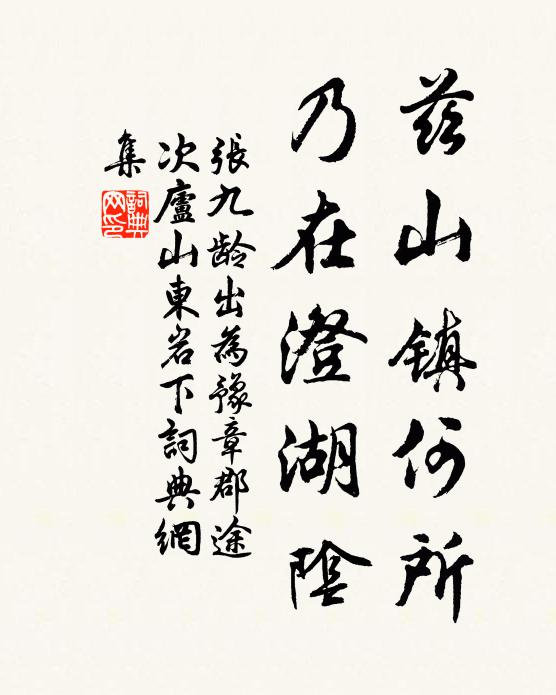 茲山鎮何所
乃在澄湖陰
張九齡出為豫章郡途
次廬山東岩下詞典網
集
詞典網印